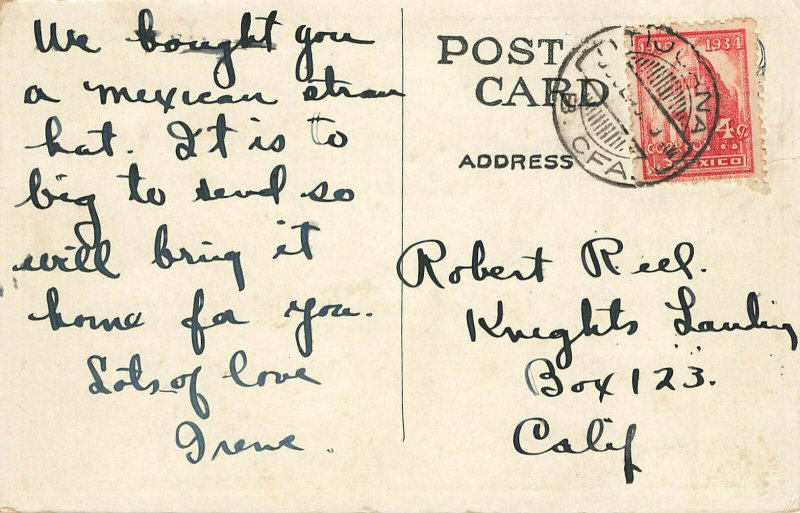 We bought you
a mexican straw
hat. It is to
big to send so
will bring it
home for you.
Lots of love
Irene.
POST
CARD
ADDRESS
1934
4¢
MEXICO
Robert Reel.
Knights Landing
Box 123.
Calif